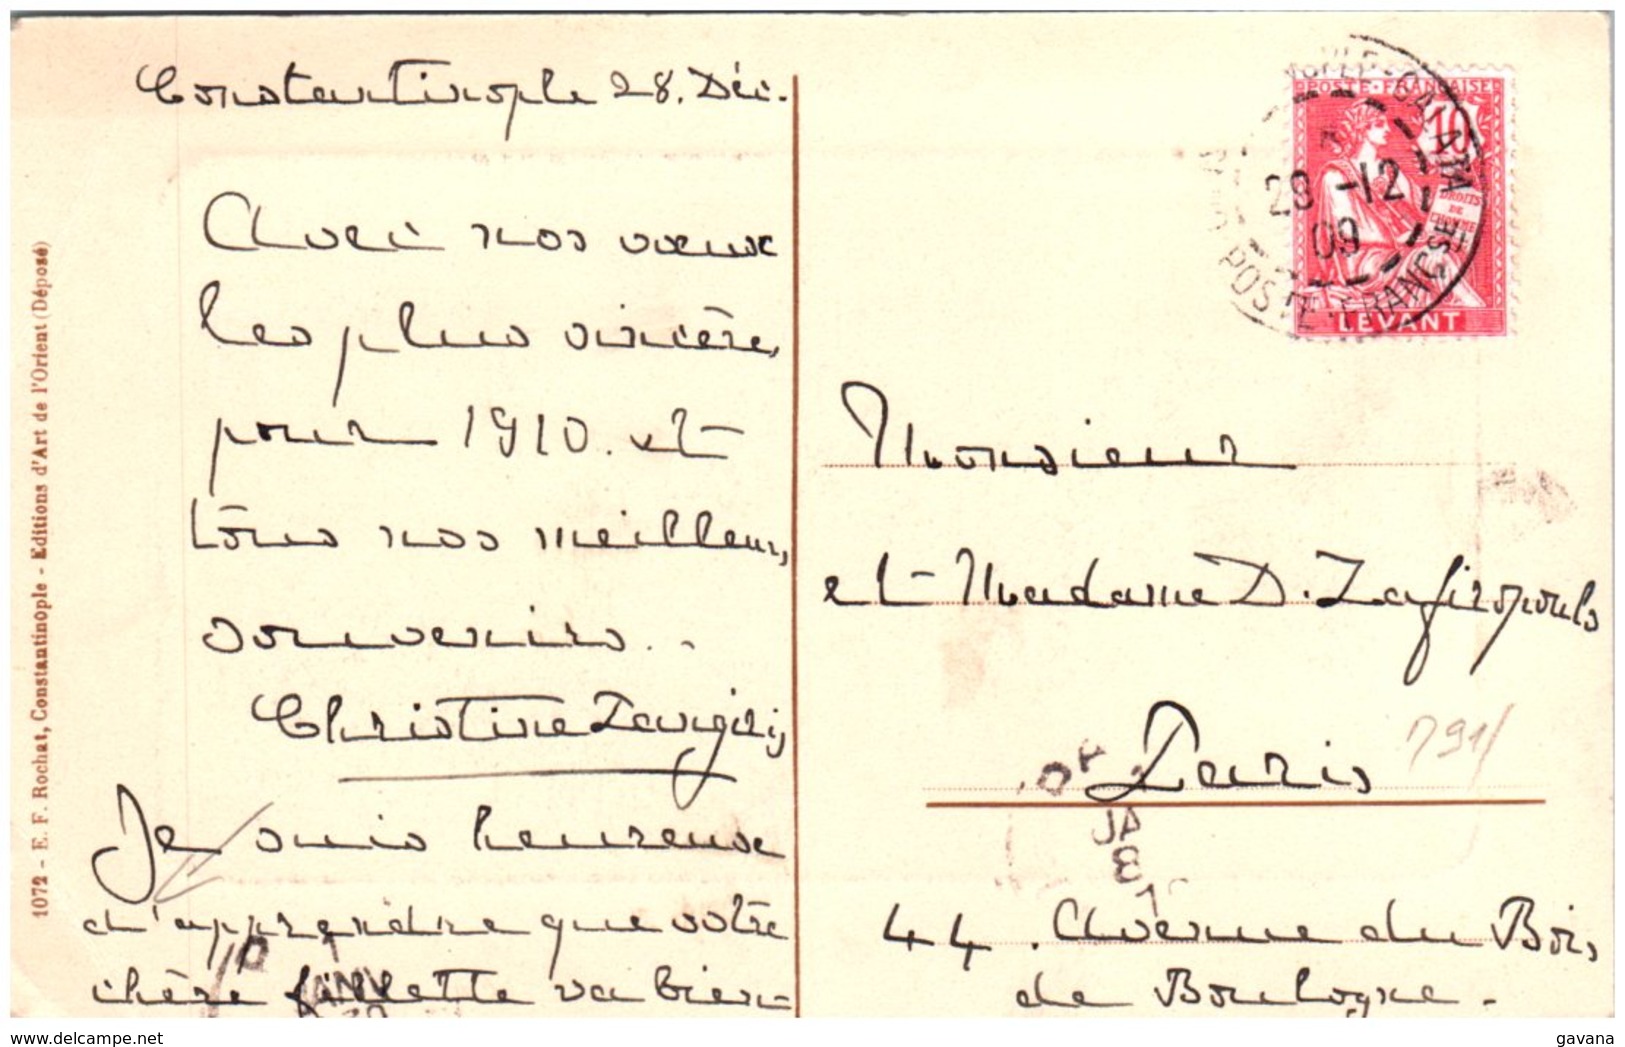 Constantinople 28. Déc.
Avec nos vœux
les plus sincères
pour 1910. et
tous nos meilleurs
souvenirs.
Christine
Je suis heureuse
d'apprendre que votre
chère fillette va bien
1072 - E. F. Rochat, Constantinople - Editions d'Art de l'Orient (Déposé)
POSTE FRANÇAISE
10
DROITS
DE
L'HOMME
LEVANT
GALATA
28 -12
09
POSTE FRANÇSE
Monsieur
et Madame D. Zafiropoulo
Paris
791
JA
8
44. Avenue du Bois
de Boulogne.
JANV
delcampe.net
gavana